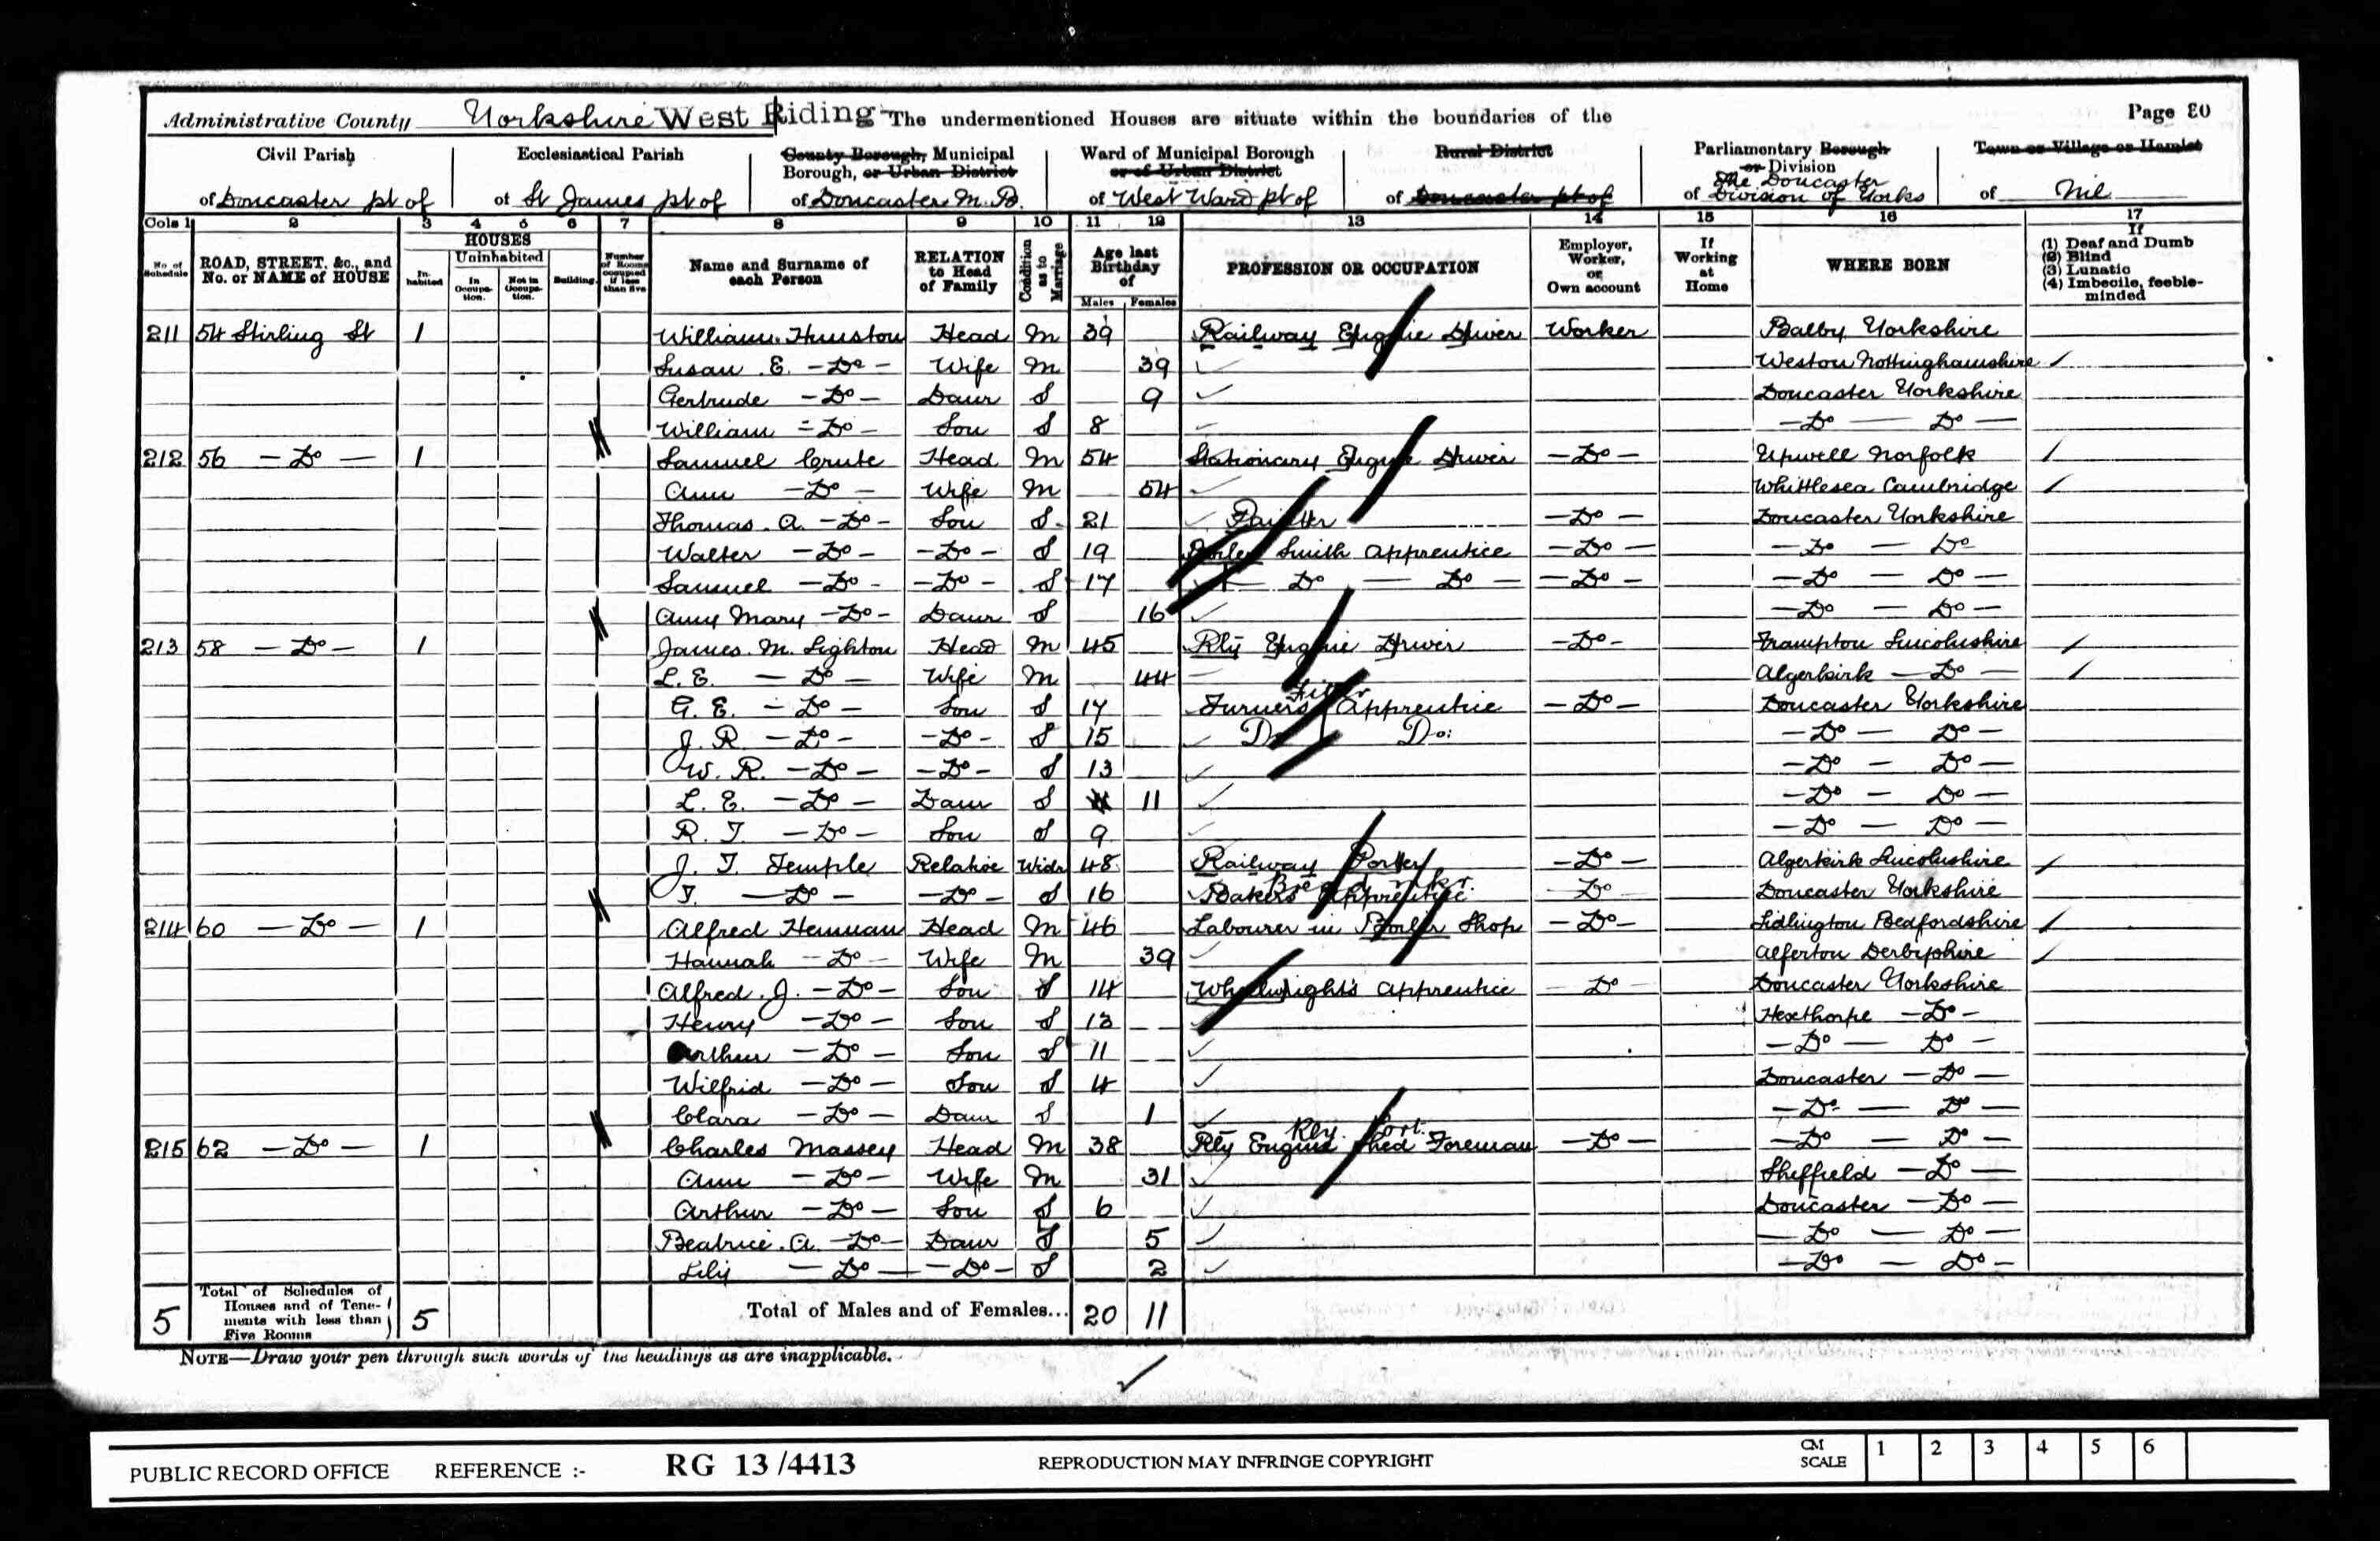 Administrative County Yorkshire West Riding The undermentioned Houses are situate within the boundaries of the Page 80
Civil Parish Ecclesiastical Parish County Borough, Municipal Ward of Municipal Borough Rural District Parliamentary Borough Town or Village or Hamlet
Borough, or Urban District or of Urban District or Division
of Doncaster pt of of St James pt of of Doncaster M. B. of West Ward pt of of Doncaster pt of of The Doncaster Division of Yorks of Nil
Cols 1 2 3 4 5 6 7 8 9 10 11 12 13 14 15 16 17
No of Schedule ROAD, STREET, &c., and No. or NAME of HOUSE HOUSES Inhabited Uninhabited In Occupation. Not in Occupation. Building. Number of Rooms occupied if less than five Name and Surname of each Person RELATION to Head of Family Condition as to Marriage Age last Birthday of Males Females PROFESSION OR OCCUPATION Employer, Worker, or Own account If Working at Home WHERE BORN If (1) Deaf and Dumb (2) Blind (3) Lunatic (4) Imbecile, feeble-minded
211 54 Stirling St 1 William Huuston Head M 39 Railway Engine Driver Worker Balby Yorkshire
Susan . E. - Do - Wife M 39 Weston Nottinghamshire
Gertrude - Do - Daur S 9 Doncaster Yorkshire
William - Do - Son S 8 - Do - Do -
212 56 - Do - 1 Samuel Crute Head M 54 Stationary Engine Driver - Do - Upwell Norfolk
Ann - Do - Wife M 54 Whittlesea Cambridge
Thomas . A. - Do - Son S. 21 Painter - Do - Doncaster Yorkshire
Walter - Do - - Do - S 19 Boiler Smith Apprentice - Do - - Do - Do
Samuel - Do - - Do - S 17 Do - Do - - Do - - Do - Do -
Amy Mary - Do - Daur S 16 - Do - Do -
213 58 - Do - 1 James. M. Lighton Head M 45 Rly Engine Driver - Do - Frampton Lincolnshire
L. E. - Do - Wife M 44 Algerkirk - Do -
G. E. - Do - Son S 17 Turners Fitter Apprentice - Do - Doncaster Yorkshire
J. R. - Do - - Do - S 15 Do Do: - Do - Do -
W. R. - Do - - Do - S 13 - Do - Do -
L. E. - Do - Daur S 11 - Do - Do -
R. T. - Do - Son S 9 - Do - Do -
J. T. Temple Relative Widr 48 Railway Porter - Do - Algerkirk Lincolnshire
T. - Do - - Do - S 16 Bakers Apprentice Do Doncaster Yorkshire
214 60 - Do - 1 Alfred Henman Head M 46 Labourer in Boiler Shop - Do - Lidlington Bedfordshire
Hannah - Do - Wife M 39 Alferton Derbyshire
Alfred. J. - Do - Son S 14 Wheelwright's Apprentice - Do Doncaster Yorkshire
Henry - Do - Son S 13 Hexthorpe - Do -
Arthur - Do - Son S 11 - Do - Do -
Wilfrid - Do - Son S 4 Doncaster - Do -
Clara - Do - Daur S 1 - Do - Do -
215 62 - Do - 1 Charles Massey Head M 38 Rly Engine Shed Foreman - Do - - Do - Do -
Ann - Do - Wife M 31 Sheffield - Do -
Arthur - Do - Son S 6 Doncaster - Do -
Beatrice. A. - Do - Daur S 5 - Do - Do -
Lily - Do - - Do - S 2 - Do - Do -
5 Total of Schedules of Houses and of Tenements with less than Five Rooms 5 Total of Males and of Females... 20 11
NOTE—Draw your pen through such words of the headings as are inapplicable.
PUBLIC RECORD OFFICE REFERENCE :- RG 13 /4413 REPRODUCTION MAY INFRINGE COPYRIGHT CM SCALE 1 2 3 4 5 6